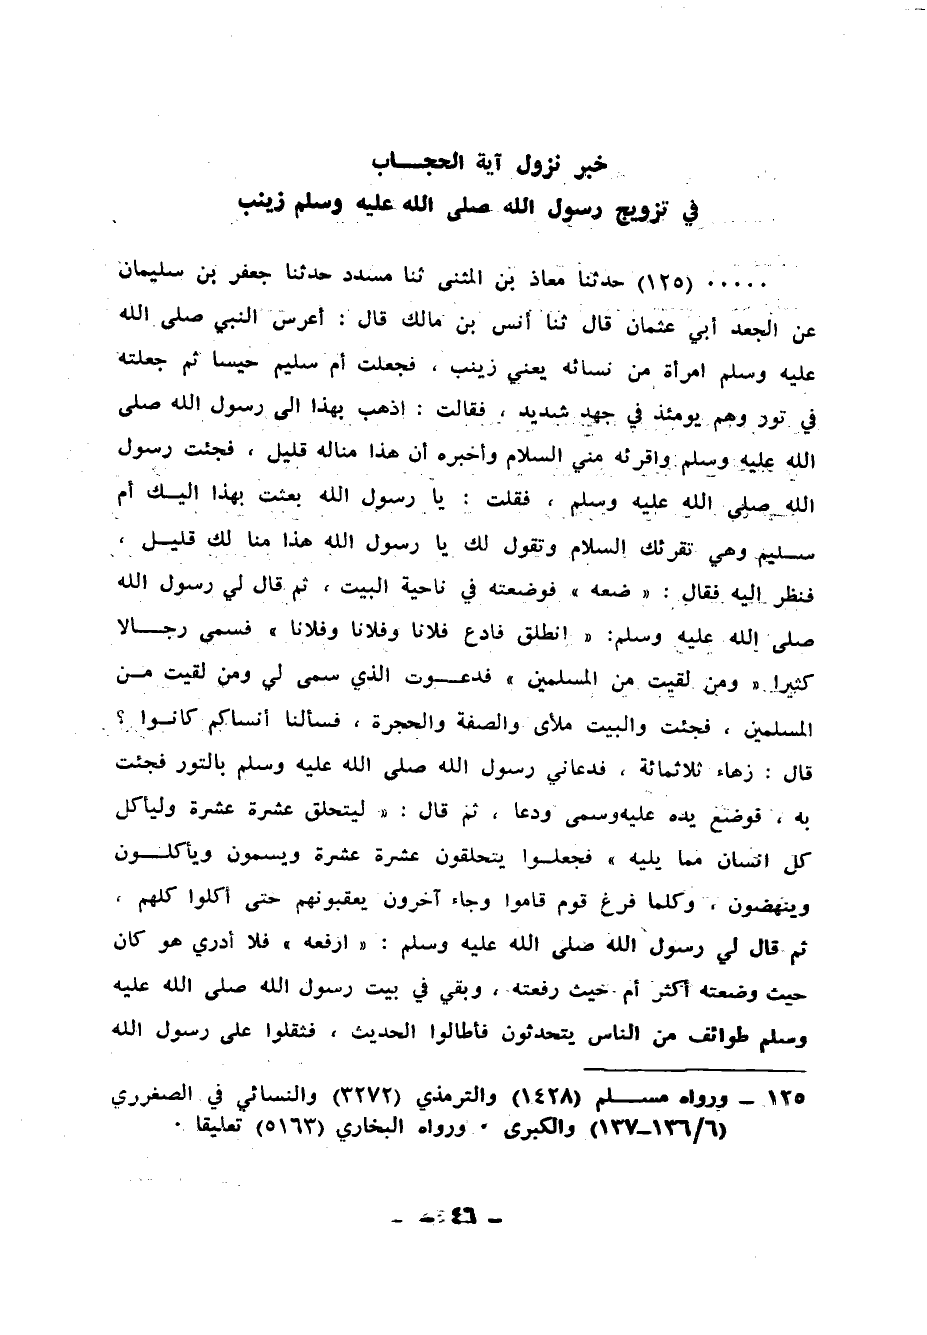 خبر نزول آية الحجـــاب
في تزويج رسول الله صلى الله عليه وسلم زينب
..... (١٢٥) حدثنا معاذ بن المثنى ثنا مسدد حدثنا جعفر بن سليمان
عن الجعد أبي عثمان قال ثنا أنس بن مالك قال : أعرس النبي صلى الله
عليه وسلم امرأة من نسائه يعني زينب ، فجعلت أم سليم حيسا ثم جعلته
في تور وهم يومئذ في جهد شديد ، فقالت : اذهب بهذا الى رسول الله صلى
الله عليه وسلم واقرئه مني السلام وأخبره أن هذا مناله قليل ، فجئت رسول
الله صلى الله عليه وسلم ، فقلت : يا رسول الله بعثت بهذا اليــك أم
ســليم وهي تقرئك السلام وتقول لك يا رسول الله هذا منا لك قليــل ،
فنظر اليه فقال : « ضعه » فوضعته في ناحية البيت ، ثم قال لي رسول الله
صلى الله عليه وسلم: « انطلق فادع فلانا وفلانا وفلانا » فسمى رجـــالا
كثيرا « ومن لقيت من المسلمين » فدعـــوت الذي سمى لي ومن لقيت مــن
المسلمين ، فجئت والبيت ملأى والصفة والحجرة ، فسألنا أنساكم كانــوا ؟
قال : زهاء ثلاثمائة ، فدعاني رسول الله صلى الله عليه وسلم بالتور فجئت
به ، فوضع يده عليه وسمى ودعا ، ثم قال : « ليتحلق عشرة عشرة وليأكل
كل انسان مما يليه » فجعلــوا يتحلقون عشرة عشرة ويسمون ويأكلـــون
وينهضون ، وكلما فرغ قوم قاموا وجاء آخرون يعقبونهم حتى أكلوا كلهم ،
ثم قال لي رسول الله صلى الله عليه وسلم : « ارفعه » فلا أدري هو كان
حيث وضعته أكثر أم حيث رفعته ، وبقي في بيت رسول الله صلى الله عليه
وسلم طوائف من الناس يتحدثون فأطالوا الحديث ، فثقلوا على رسول الله
١٢٥ ــ ورواه مســـلم (١٤٢٨) والترمذي (٣٢٧٢) والنسائي في الصغرري
(١٣٦/٦ــ١٣٧) والكبرى . ورواه البخاري (٥١٦٣) تعليقا .
ــ ٤٦ ــ